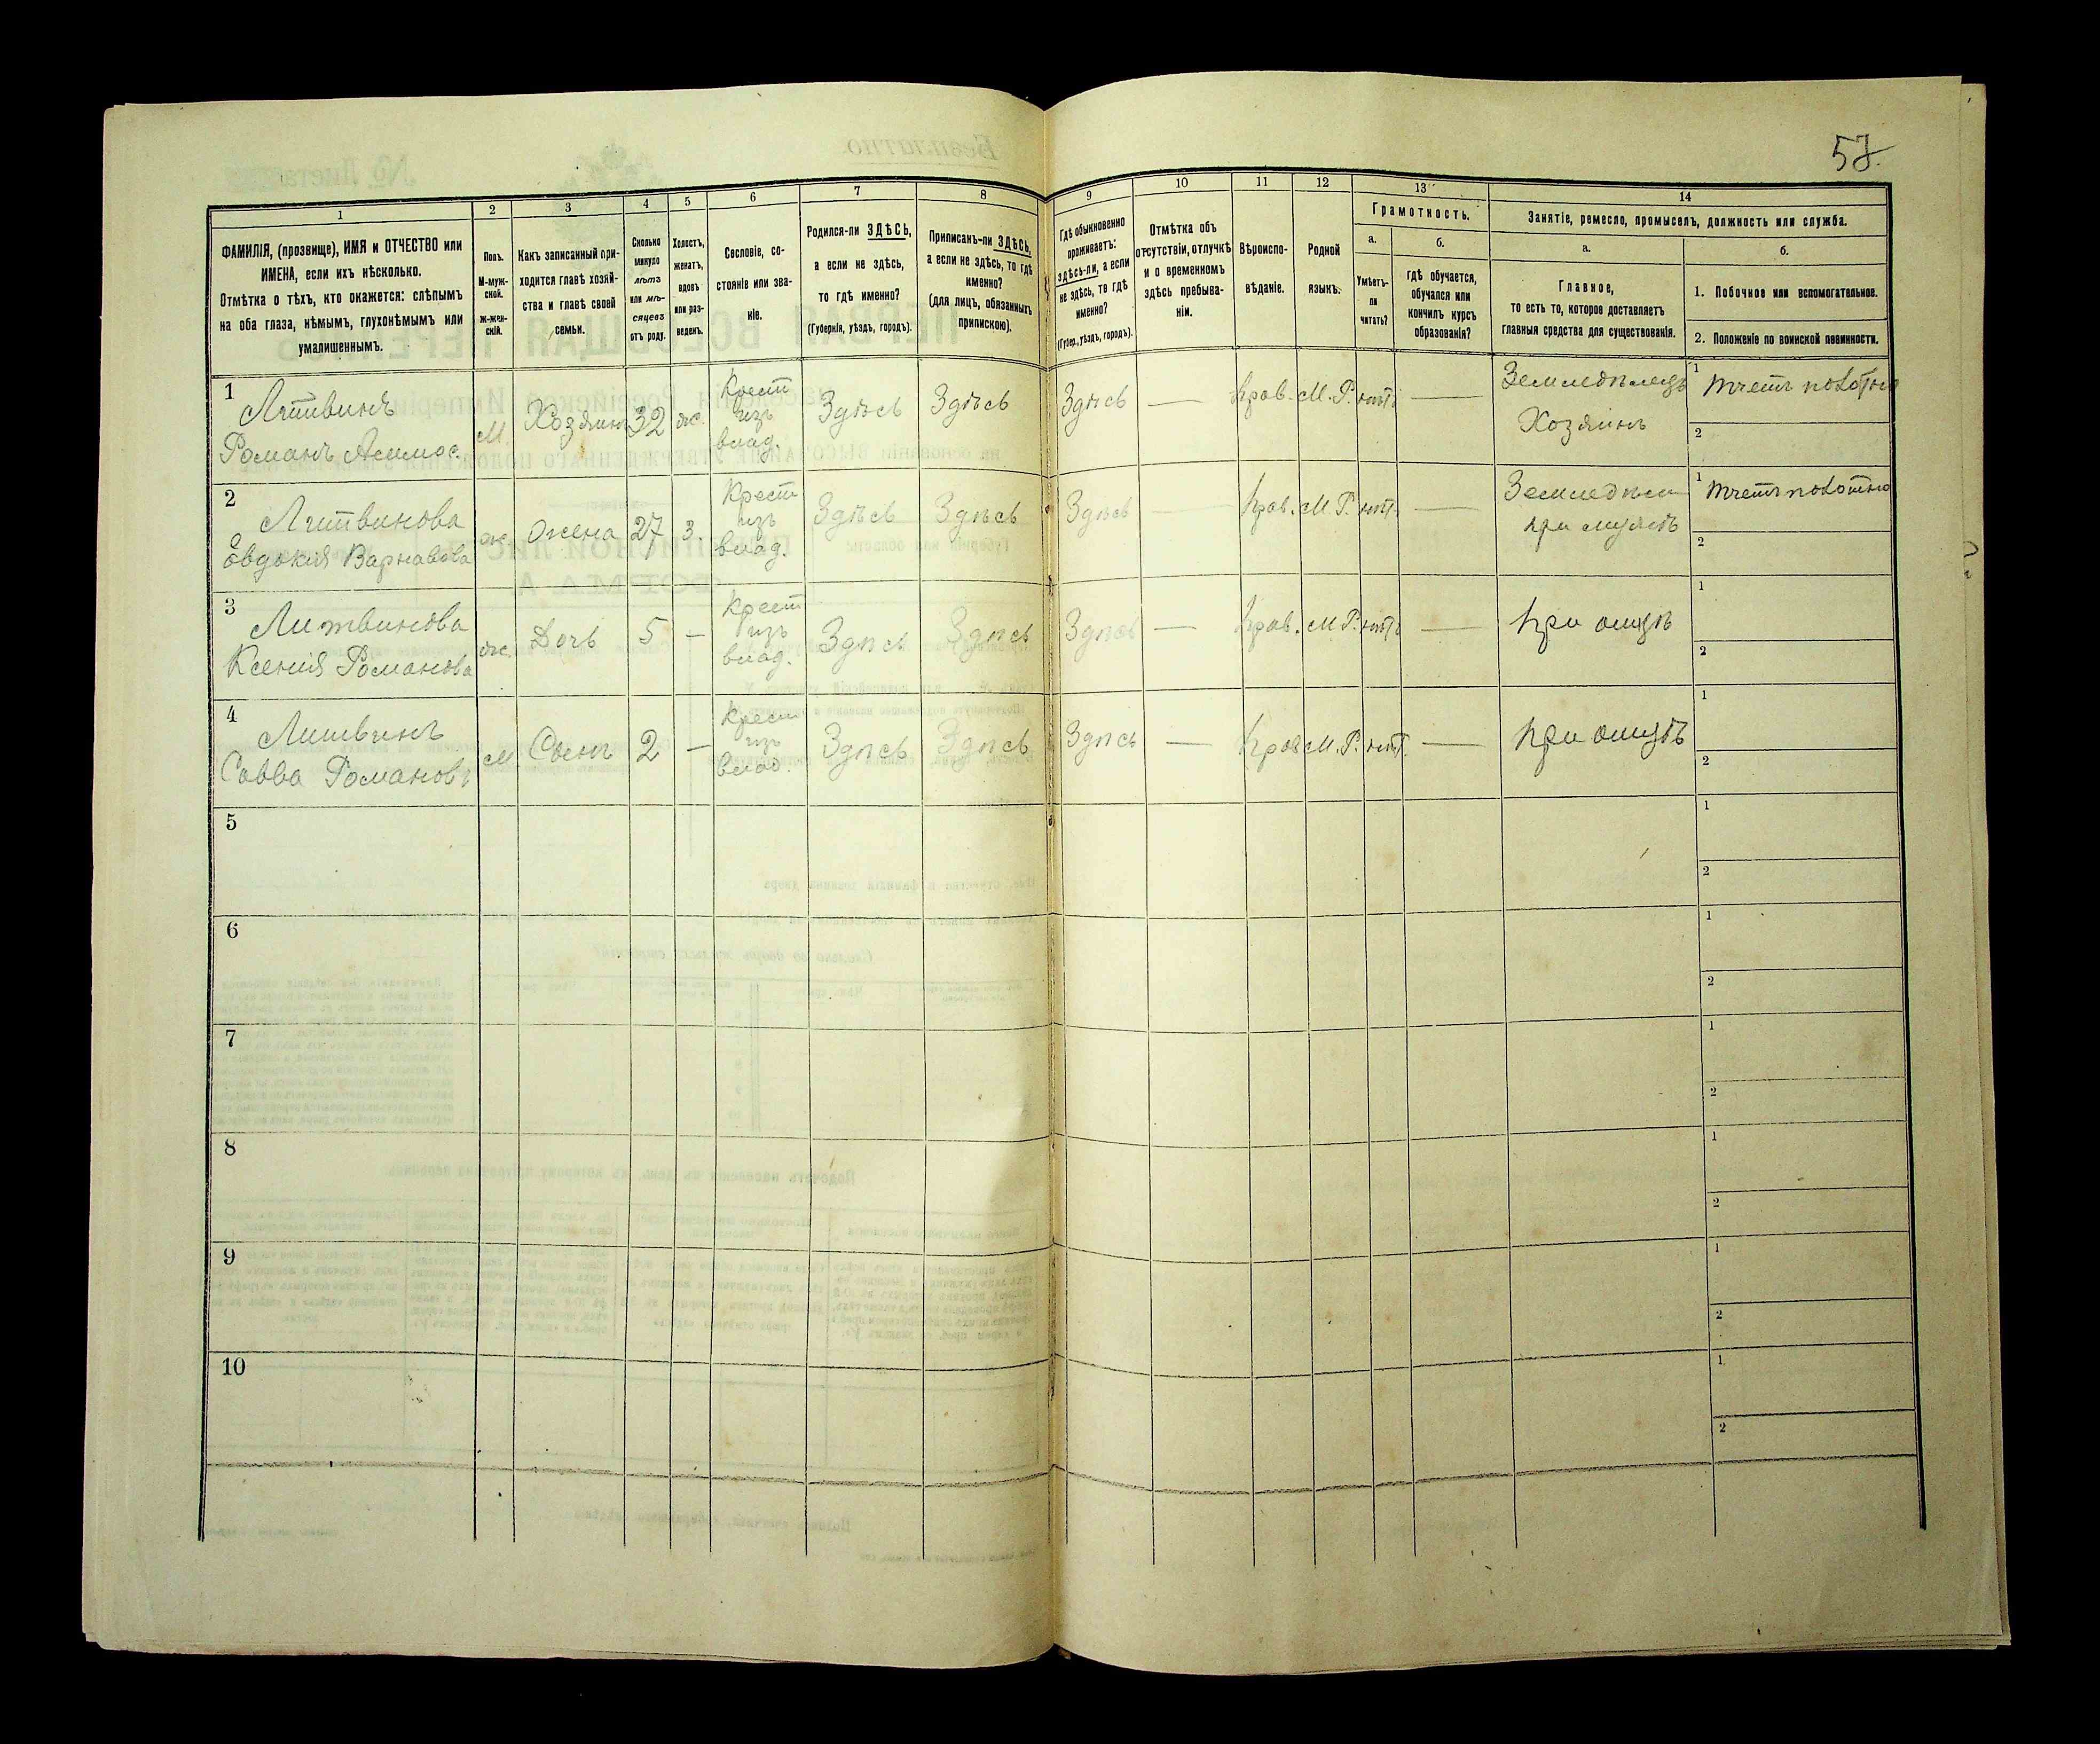 57
1
2
3
4
5
6
7
8
9
10
11
12
13
14
ФАМИЛІЯ, (прозвище), ИМЯ и ОТЧЕСТВО или
ИМЕНА, если ихъ нѣсколько.
Отмѣтка о тѣхъ, кто окажется: слѣпымъ
на оба глаза, нѣмымъ, глухонѣмымъ или
умалишеннымъ.
Полъ.
М-муж-
ской.
Ж-жен-
скій.
Какъ записанный при-
ходится главѣ хозяй-
ства и главѣ своей
семьи.
Сколько
минуло
лѣтъ
или мѣ-
сяцевъ
отъ роду.
Холостъ,
женатъ,
вдовъ
или раз-
веденъ.
Сословіе, со-
стояніе или зва-
ніе.
Родился-ли ЗДѢСЬ,
а если не здѣсь,
то гдѣ именно?
(Губернія, уѣздъ, городъ).
Приписанъ-ли ЗДѢСЬ,
а если не здѣсь, то гдѣ
именно?
(для лицъ, обязанныхъ
припискою).
Гдѣ обыкновенно
проживаетъ:
здѣсь-ли, а если
не здѣсь, то гдѣ
именно?
(Губер., уѣздъ, городъ).
Отмѣтка объ
отсутствіи, отлучкѣ
и о временномъ
здѣсь пребыва-
ніи.
Вѣроиспо-
вѣданіе.
Родной
языкъ.
Грамотность.
а.
Умѣетъ-
ли
читать?
б.
гдѣ обучается,
обучался или
кончилъ курсъ
образованія?
Занятіе, ремесло, промыселъ, должность или служба.
а.
Главное,
то есть то, которое доставляетъ
главныя средства для существованія.
б.
1. Побочное или вспомогательное.
2. Положеніе по воинской повинности.
1
Литвинъ
Романъ
М.
Хозяинъ
32
ж.
Крест
изъ
влад.
Здѣсь
Здѣсь
Здѣсь
—
Прав.
М.Р.
нѣтъ
—
Земледѣлецъ
Хозяинъ
1
Ткетъ полотно
2
2
Литвинова
Евдокія Варнавова
ж.
Жена
27
З.
Крест
изъ
влад.
Здѣсь
Здѣсь
Здѣсь
—
Прав.
М.Р.
нѣт.
—
Земледѣл
при мужѣ
1
Ткетъ полотно
2
3
Литвинова
Ксенія Романова
ж.
Дочь
5
—
Крест
изъ
влад.
Здѣсь
Здѣсь
Здѣсь
—
Прав.
М.Р.
нѣтъ
—
При отцѣ
1
2
4
Литвинъ
Савва Романовъ
М.
Сынъ
2
—
Крест
изъ
влад.
Здѣсь
Здѣсь
Здѣсь
—
Прав
М.Р.
нѣт.
—
При отцѣ
1
2
5
1
2
6
1
2
7
1
2
8
1
2
9
1
2
10
1
2